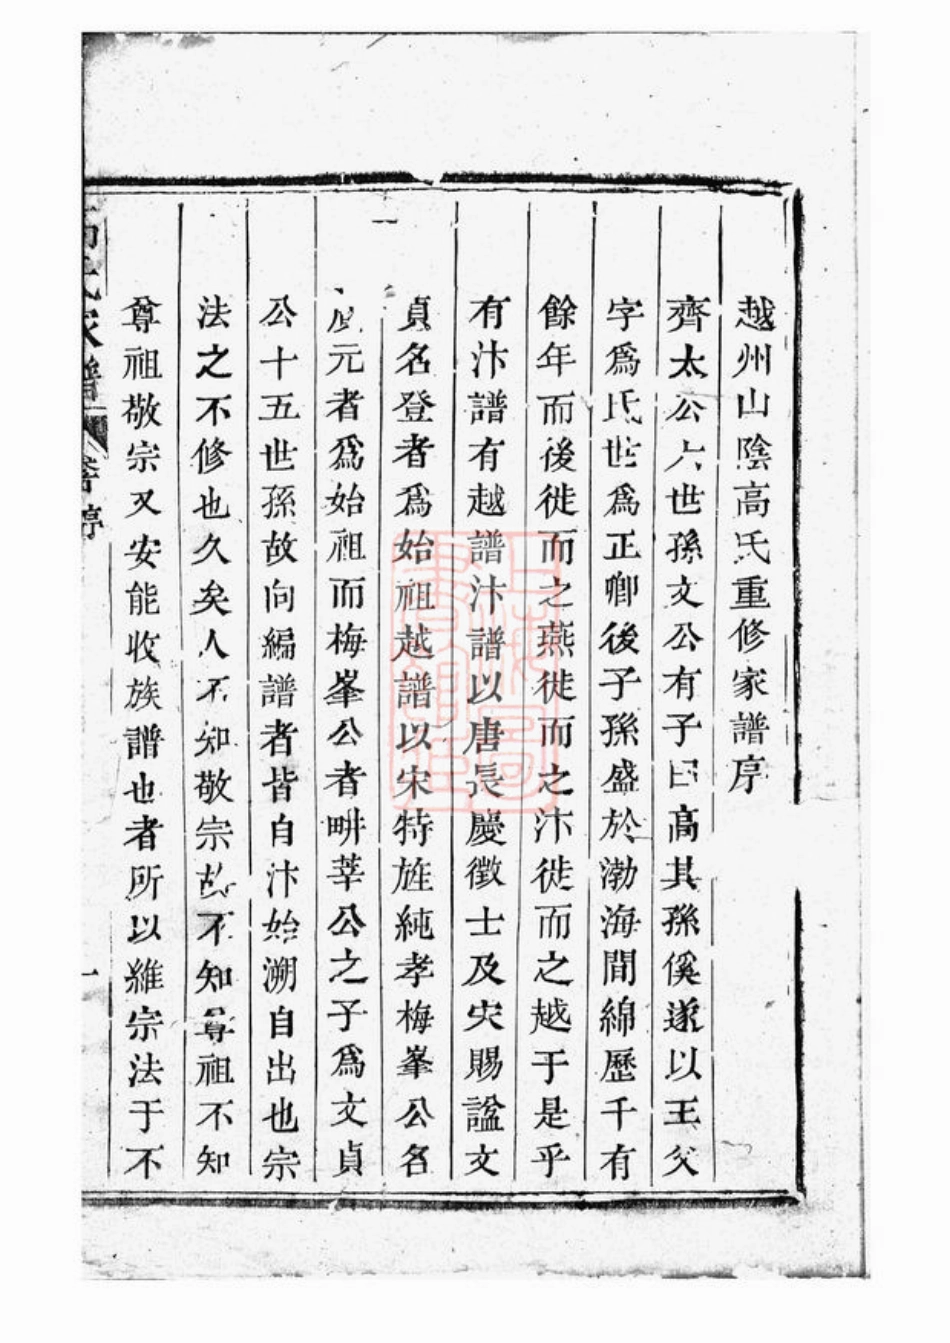 越州山陰高氏重修家譜序
齊太公六世孫文公有子曰高其孫傒遂以王父
字爲氏世爲正卿後子孫盛於渤海間綿歷千有
餘年而後徙而之燕徙而之汴徙而之越于是乎
有汴譜有越譜汴譜以唐長慶徵士及宋賜諡文
貞名登者爲始祖越譜以宋特旌純孝梅峯公名
元者爲始祖而梅峯公者畊莘公之子爲文貞
公十五世孫故向編譜者皆自汴始溯自出也宗
法之不修也久矣人不知敬宗故不知尊祖不知
尊祖敬宗又安能收族譜也者所以維宗法于不
氏家譜
序
一
上海圖書館藏